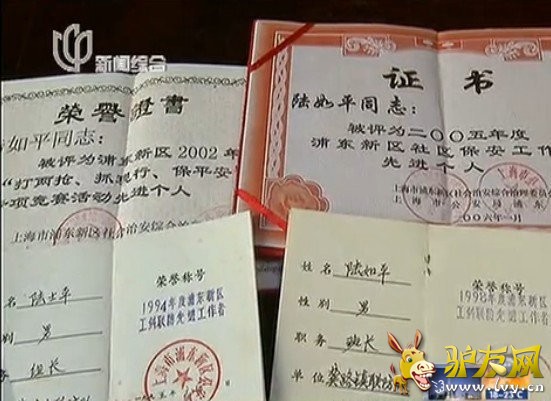 新闻综合
榮譽證書
如平同志：
被评为浦东新区2002年
“打两抢、抓现行、保平安”
项竞赛活动先进个人
上海市浦东新区社会治安综合治
证书
陆如平同志：
被评为二〇〇五年度
浦东新区社区保安工作
先进个人
上海市浦东新区社会治安综合治理委员
上海市公安局浦东
二〇〇六年一月
名 陆士平
别 男
务 组长
荣誉称号
1994年度浦东新区
工纠联防先进工作者
姓名 陆如平
性别 男
职务 班长
单位
荣誉称号
1998年度浦东新区
工纠联防先进工作者
驴友网
www.lvyy.cn
18-23℃